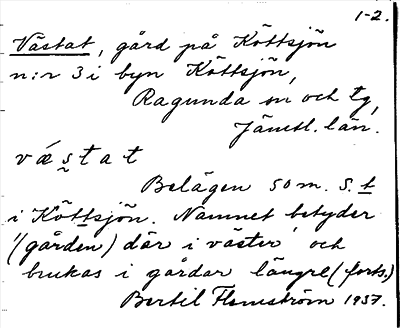 1-2.
Västat, gård på Köttsjön
n:r 3 i byn Köttsjön,
Ragunda sn och tg,
Jämtl. län.
vä́s̰tat
Belägen 50 m. S. t
i Köttsjön. Namnet betyder
'(gården) där i väster' och
brukas i gårdar längre (forts.)
Bertil Flemström 1937.